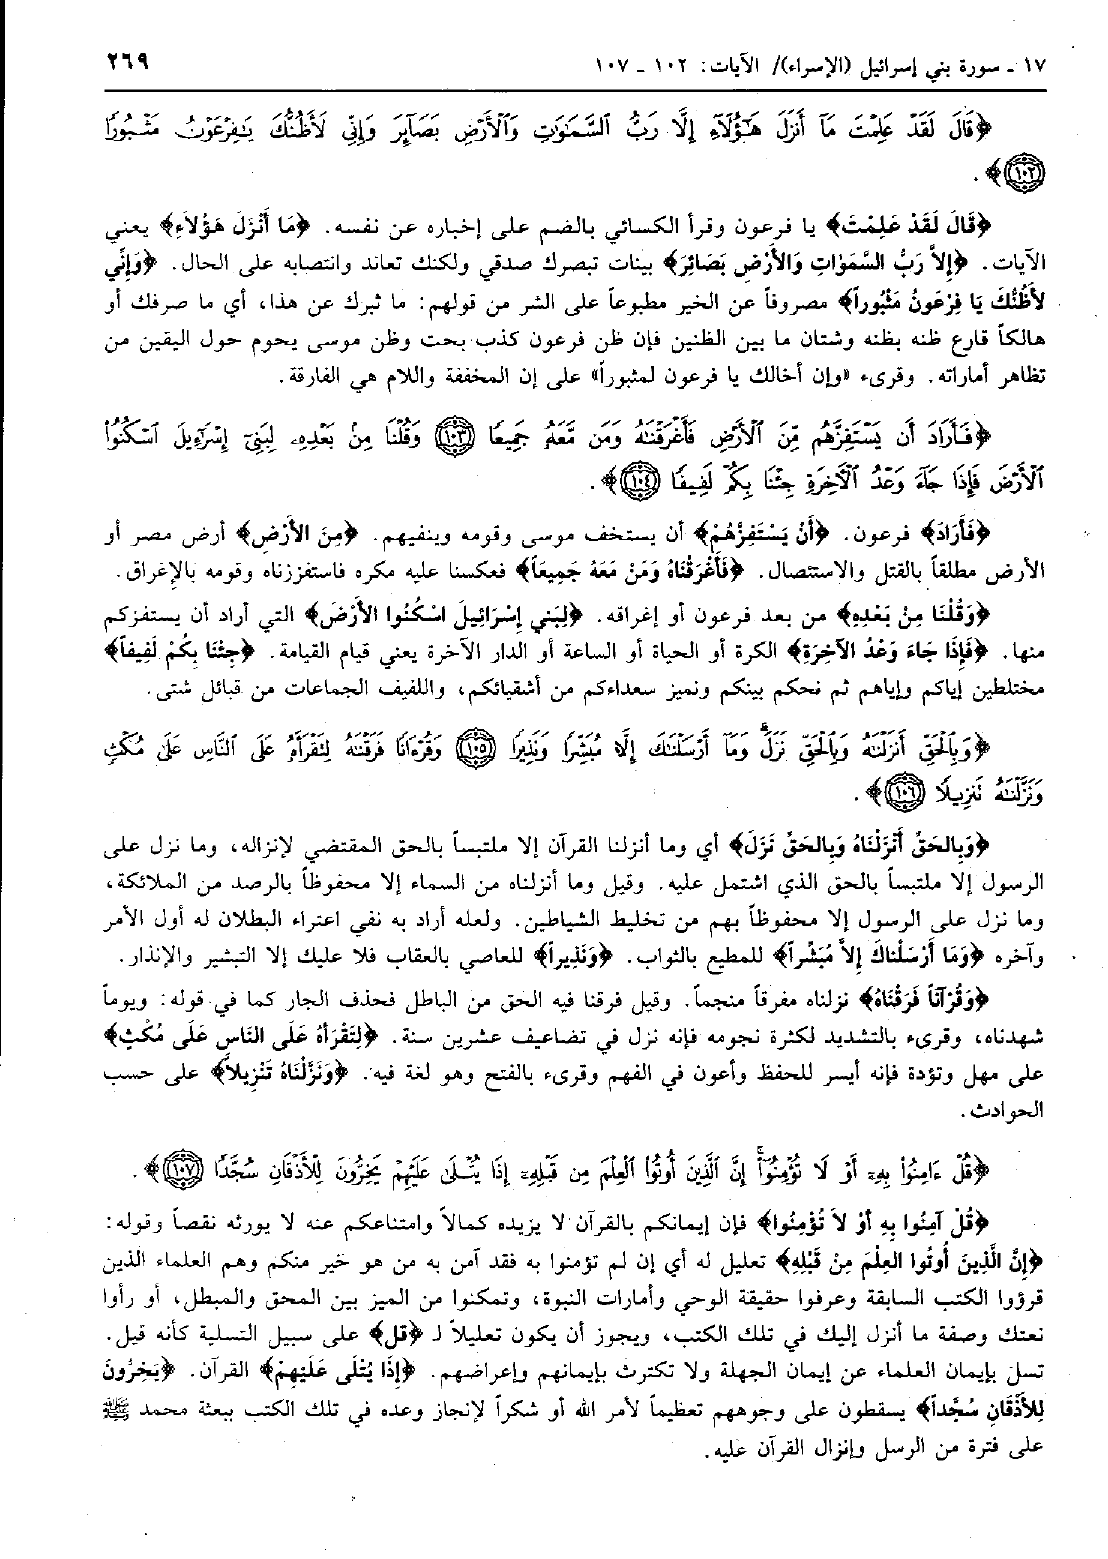 ١٧ ـ سورة بني إسرائيل (الإسراء)/ الآيات: ١٠٢ ـ ١٠٧ ٢٦٩
﴿قَالَ لَقَدْ عَلِمْتَ مَآ أَنزَلَ هَـٰٓؤُلَآءِ إِلَّا رَبُّ ٱلسَّمَـٰوَٰتِ وَٱلْأَرْضِ بَصَآئِرَ وَإِنِّى لَأَظُنُّكَ يَـٰفِرْعَوْنُ مَثْبُورًا
(١٠٢)﴾.
﴿قَالَ لَقَدْ عَلِمْتَ﴾ يا فرعون وقرأ الكسائي بالضم على إخباره عن نفسه. ﴿مَا أَنْزَلَ هَؤُلاَءِ﴾ يعني
الآيات. ﴿إِلاَّ رَبُّ السَّمَوَاتِ وَالأَرْضِ بَصَائِرَ﴾ بينات تبصرك صدقي ولكنك تعاند وانتصابه على الحال. ﴿وَإِنِّي
لأَظُنُّكَ يَا فِرْعَونُ مَثْبُوراً﴾ مصروفاً عن الخير مطبوعاً على الشر من قولهم: ما ثبرك عن هذا، أي ما صرفك أو
هالكاً قارع ظنه بظنه وشتان ما بين الظنين فإن ظن فرعون كذب بحت وظن موسى يحوم حول اليقين من
تظاهر أماراته. وقرىء «وإن أخالك يا فرعون لمثبوراً» على إن المخففة واللام هي الفارقة.
﴿فَأَرَادَ أَن يَسْتَفِزَّهُم مِّنَ ٱلْأَرْضِ فَأَغْرَقْنَـٰهُ وَمَن مَّعَهُۥ جَمِيعًا (١٠٣) وَقُلْنَا مِنۢ بَعْدِهِۦ لِبَنِىٓ إِسْرَٰٓءِيلَ ٱسْكُنُوا۟
ٱلْأَرْضَ فَإِذَا جَآءَ وَعْدُ ٱلْـَٔاخِرَةِ جِئْنَا بِكُمْ لَفِيفًا (١٠٤)﴾.
﴿فَأَرَادَ﴾ فرعون. ﴿أَنْ يَسْتَفِزَّهُمْ﴾ أن يستخف موسى وقومه وينفيهم. ﴿مِنَ الأَرْضِ﴾ أرض مصر أو
الأرض مطلقاً بالقتل والاستئصال. ﴿فَأَغْرَقْنَاهُ وَمَنْ مَعَهُ جَمِيعاً﴾ فعكسنا عليه مكره فاستفززناه وقومه بالإغراق.
﴿وَقُلْنَا مِنْ بَعْدِهِ﴾ من بعد فرعون أو إغراقه. ﴿لِبَنِي إِسْرَائِيلَ اسْكُنُوا الأَرْضَ﴾ التي أراد أن يستفزكم
منها. ﴿فَإِذَا جَاءَ وَعْدُ الآخِرَةِ﴾ الكرة أو الحياة أو الساعة أو الدار الآخرة يعني قيام القيامة. ﴿جِئْنَا بِكُمْ لَفِيفاً﴾
مختلطين إياكم وإياهم ثم نحكم بينكم ونميز سعداءكم من أشقيائكم، واللفيف الجماعات من قبائل شتى.
﴿وَبِٱلْحَقِّ أَنزَلْنَـٰهُ وَبِٱلْحَقِّ نَزَلَ ۗ وَمَآ أَرْسَلْنَـٰكَ إِلَّا مُبَشِّرًا وَنَذِيرًا (١٠٥) وَقُرْءَانًا فَرَقْنَـٰهُ لِتَقْرَأَهُۥ عَلَى ٱلنَّاسِ عَلَىٰ مُكْثٍ
وَنَزَّلْنَـٰهُ تَنزِيلًا (١٠٦)﴾.
﴿وَبِالحَقِّ أَنْزَلْنَاهُ وَبِالحَقِّ نَزَلَ﴾ أي وما أنزلنا القرآن إلا ملتبساً بالحق المقتضي لإنزاله، وما نزل على
الرسول إلا ملتبساً بالحق الذي اشتمل عليه. وقيل وما أنزلناه من السماء إلا محفوظاً بالرصد من الملائكة،
وما نزل على الرسول إلا محفوظاً بهم من تخليط الشياطين. ولعله أراد به نفي اعتراء البطلان له أول الأمر
وآخره ﴿وَمَا أَرْسَلْنَاكَ إِلاَّ مُبَشِّراً﴾ للمطيع بالثواب. ﴿وَنَذِيراً﴾ للعاصي بالعقاب فلا عليك إلا التبشير والإنذار.
﴿وَقُرْآناً فَرَقْنَاهُ﴾ نزلناه مفرقاً منجماً. وقيل فرقنا فيه الحق من الباطل فحذف الجار كما في قوله: ويوماً
شهدناه، وقرىء بالتشديد لكثرة نجومه فإنه نزل في تضاعيف عشرين سنة. ﴿لِتَقْرَأَهُ عَلَى النَّاسِ عَلَى مُكْثٍ﴾
على مهل وتؤدة فإنه أيسر للحفظ وأعون في الفهم وقرىء بالفتح وهو لغة فيه. ﴿وَنَزَّلْنَاهُ تَنْزِيلاً﴾ على حسب
الحوادث.
﴿قُلْ ءَامِنُوا۟ بِهِۦٓ أَوْ لَا تُؤْمِنُوٓا۟ ۚ إِنَّ ٱلَّذِينَ أُوتُوا۟ ٱلْعِلْمَ مِن قَبْلِهِۦٓ إِذَا يُتْلَىٰ عَلَيْهِمْ يَخِرُّونَ لِلْأَذْقَانِ سُجَّدًا (١٠٧)﴾.
﴿قُلْ آمِنُوا بِهِ أَوْ لاَ تُؤْمِنُوا﴾ فإن إيمانكم بالقرآن لا يزيده كمالاً وامتناعكم عنه لا يورثه نقصاً وقوله:
﴿إِنَّ الَّذِينَ أُوتُوا العِلْمَ مِنْ قَبْلِهِ﴾ تعليل له أي إن لم تؤمنوا به فقد آمن به من هو خير منكم وهم العلماء الذين
قرؤوا الكتب السابقة وعرفوا حقيقة الوحي وأمارات النبوة، وتمكنوا من الميز بين المحق والمبطل، أو رأوا
نعتك وصفة ما أنزل إليك في تلك الكتب، ويجوز أن يكون تعليلاً لـ ﴿قل﴾ على سبيل التسلية كأنه قيل.
تسل بإيمان العلماء عن إيمان الجهلة ولا تكترث بإيمانهم وإعراضهم. ﴿إِذَا يُتْلَى عَلَيْهِمْ﴾ القرآن. ﴿يَخِرُّونَ
لِلأَذْقَانِ سُجَّداً﴾ يسقطون على وجوههم تعظيماً لأمر الله أو شكراً لإنجاز وعده في تلك الكتب ببعثة محمد ﷺ
على فترة من الرسل وإنزال القرآن عليه.